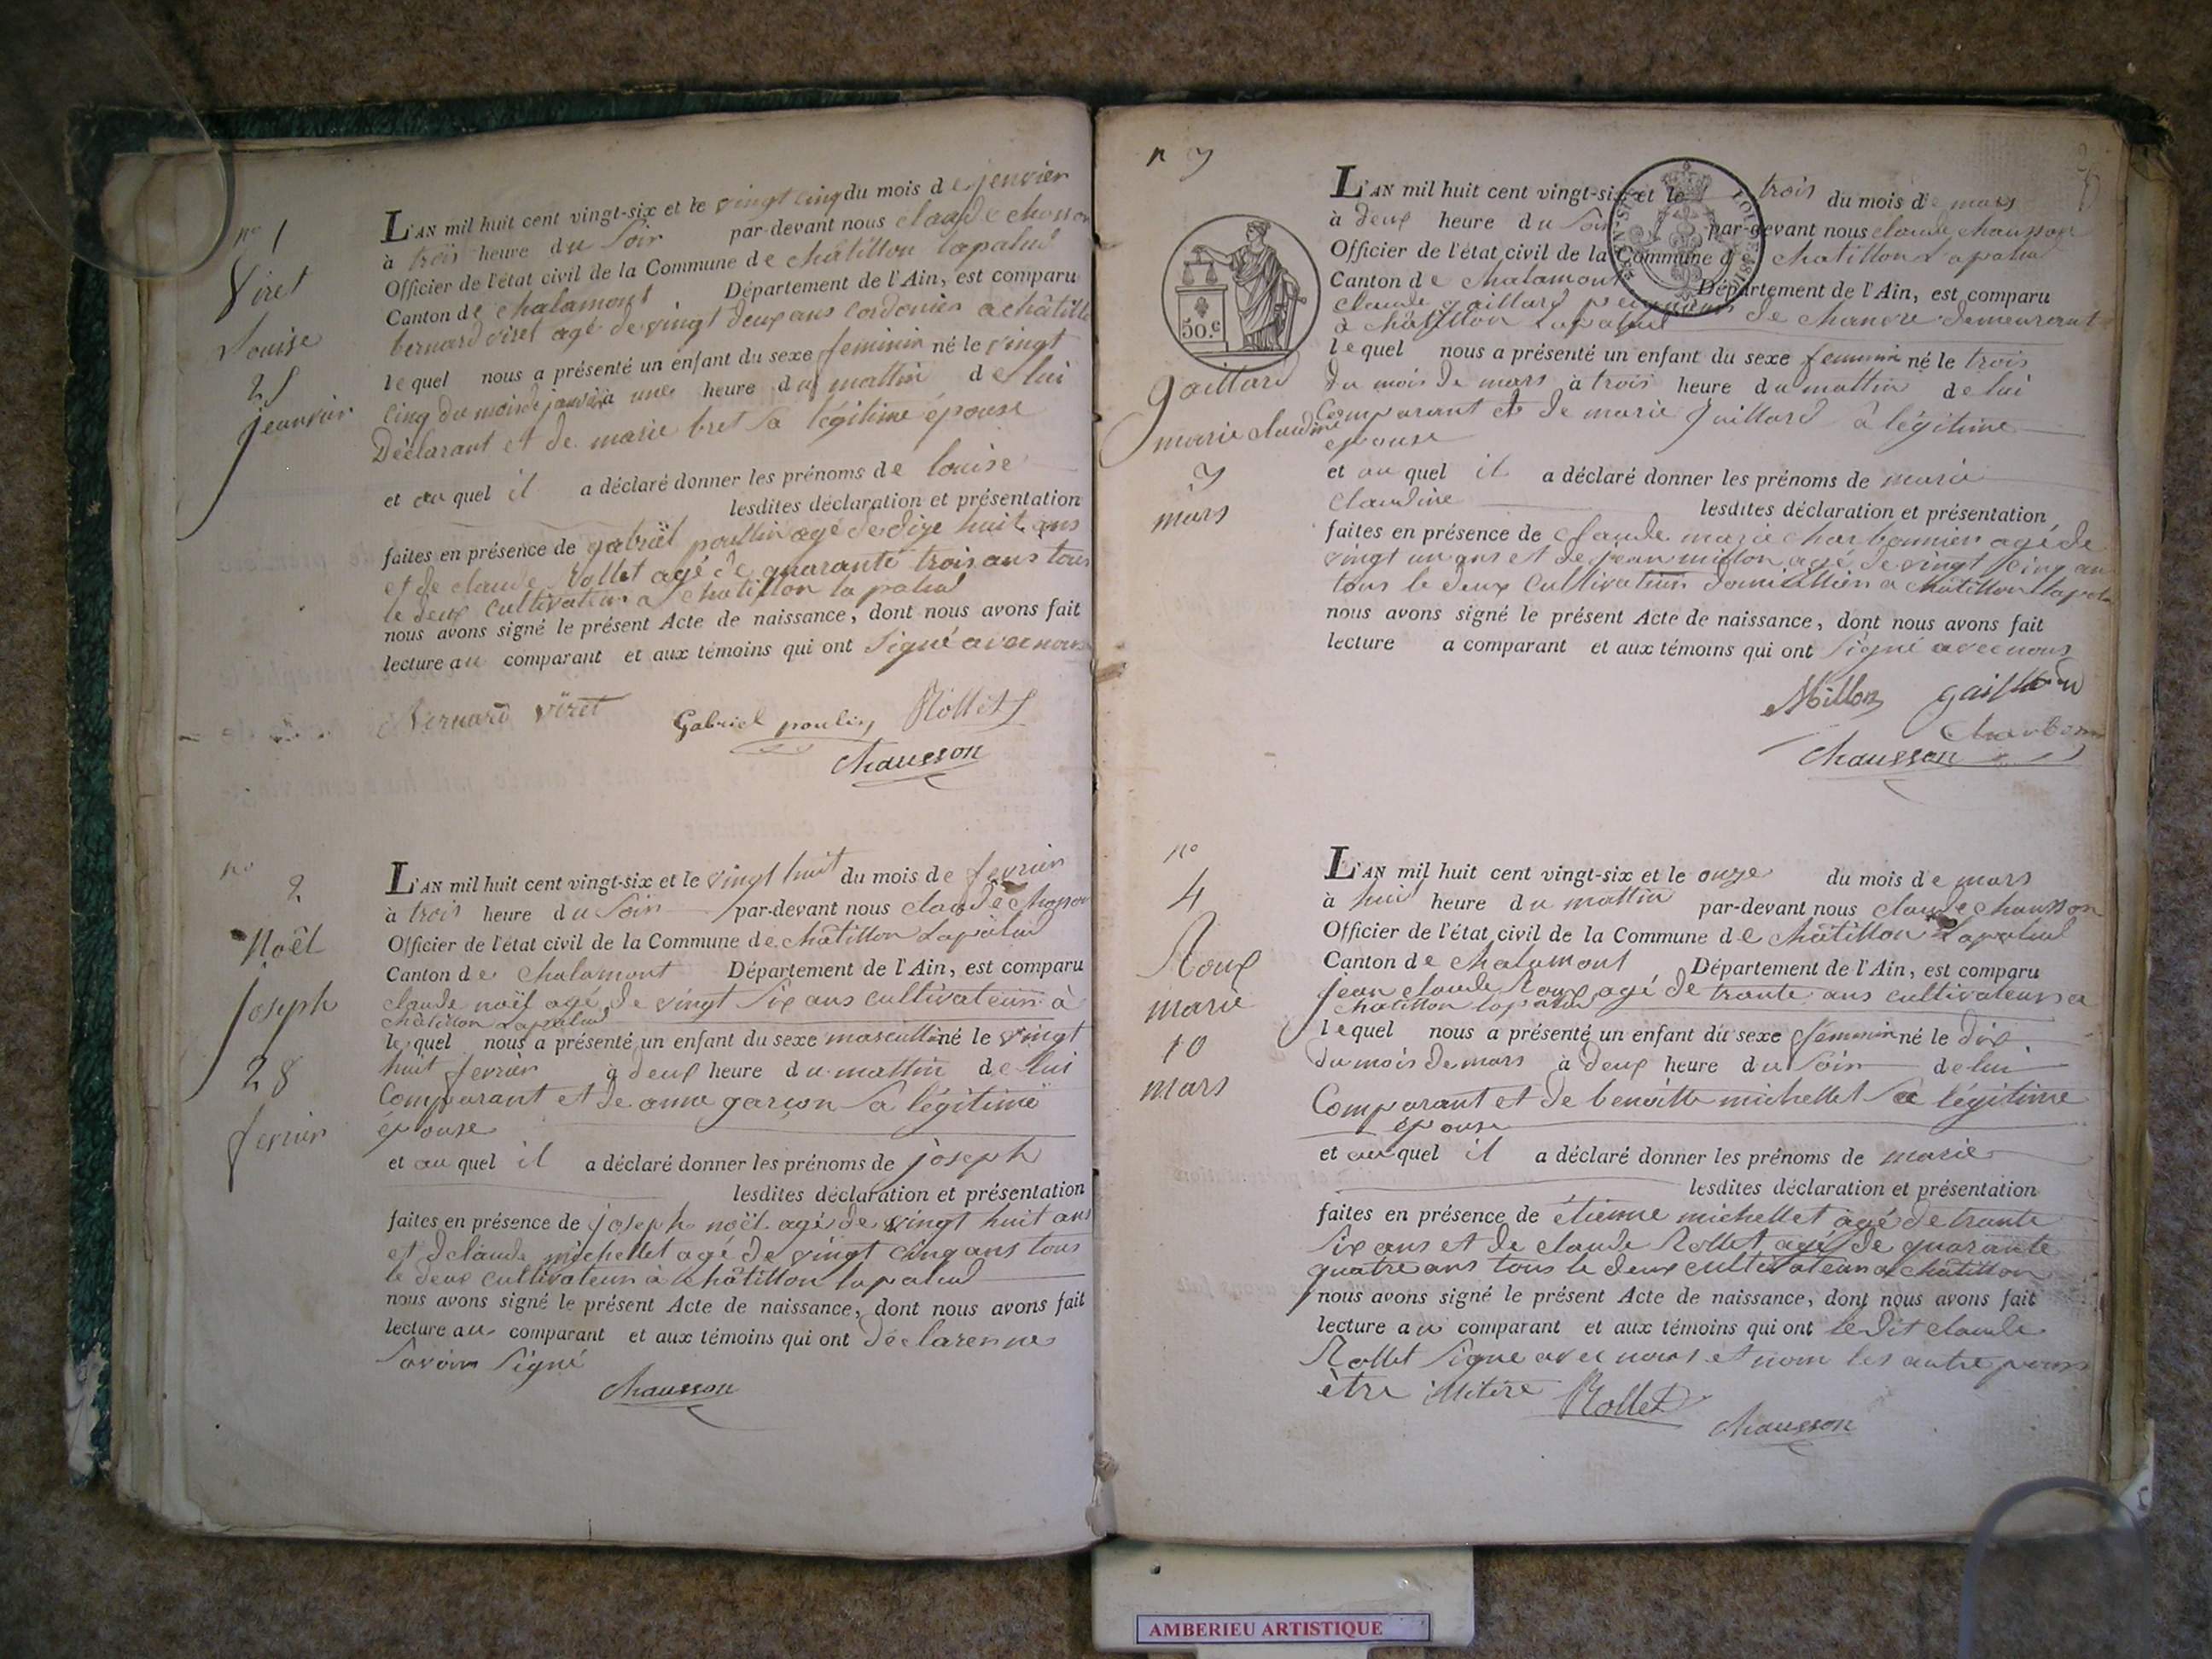 no 1
Viret
Louise
25
jeanvier
L'AN mil huit cent vingt-six et le vingt cinq du mois de jenvier
à trois heure du Soir par-devant nous claude chosson
Officier de l'état civil de la Commune de châtillon lapalud
Canton de chalamont Département de l'Ain, est comparu
bernard viret agé de vingt deux ans cordonier a châtillo
lequel nous a présenté un enfant du sexe feminin né le vingt
cinq du mois de janvier a une heure du mattin de lui
Déclarant et de marie bret Sa légitime épouse
et au quel il a déclaré donner les prénoms de louise
lesdites déclaration et présentation
faites en présence de gabriël poullin agé de dize huit ans
et de claude Rollet agé de quarante trois ans tous
le deux cultivateur a chatillon la palud
nous avons signé le présent Acte de naissance, dont nous avons fait
lecture au comparant et aux témoins qui ont Signé avec nous
Bernard viret Gabriel poulin Rollet
chausson
no 2
Noël
joseph
28
fevrier
L'AN mil huit cent vingt-six et le vingt huit du mois de fevrier
à trois heure du Soir par-devant nous claude chosson
Officier de l'état civil de la Commune de châtillon Lapalud
Canton de chalamont Département de l'Ain, est comparu
claude noël agé de vingt Six ans cultivateur à
châtillon Lapalud
lequel nous a présenté un enfant du sexe mascullin né le vingt
huit fevrier à deux heure du mattin de lui
Comparant et de anne garçon Sa légitime
épouse
et au quel il a déclaré donner les prénoms de joseph
lesdites déclaration et présentation
faites en présence de joseph noël agé de vingt huit ans
et de claude michellet agé de vingt cinq ans tous
le deux cultivateur à châtillon lapalud
nous avons signé le présent Acte de naissance, dont nous avons fait
lecture au comparant et aux témoins qui ont déclarer ne
Savoir Signé
chausson
n 3
50.c
gaillard
marie claudine
3
mars
L'AN mil huit cent vingt-six et le trois du mois de mars
à deux heure du Soir par-devant nous claude chausson
Officier de l'état civil de la Commune de chatillon Lapalud
Canton de chalamont Département de l'Ain, est comparu
claude gaillard de chanvre demeurant
à châtillon Lapalud
lequel nous a présenté un enfant du sexe feminin né le trois
du mois de mars à trois heure du mattin de lui
Comparant et de marie juillard légitime
épouse
et au quel il a déclaré donner les prénoms de marie
claudine lesdites déclaration et présentation
faites en présence de claude marie charbonnier agé de
vingt un ans et de jean millon agé de vingt cinq an
tous le deux cultivateur domicillier a châtillon lapalu
nous avons signé le présent Acte de naissance, dont nous avons fait
lecture a comparant et aux témoins qui ont Signé avec nous
Millon gaillard
chausson
no
4
Roux
marie
10
mars
L'AN mil huit cent vingt-six et le onze du mois de mars
à huit heure du mattin par-devant nous claude chausson
Officier de l'état civil de la Commune de châtillon Lapalud
Canton de chalamont Département de l'Ain, est comparu
jean claude Roux agé de trante ans cultivateur a
chatillon lapalud
lequel nous a présenté un enfant du sexe féminin né le dix
du mois de mars à deux heure du Soir de lui
Comparant et de benoitte michellet Sa légitime
épouse
et au quel il a déclaré donner les prénoms de marie
lesdites déclaration et présentation
faites en présence de étienne michellet agé de trante
Six ans et de claude Rollet agé de quarante
quatre ans tous le deux cultivateur a châtillon
nous avons signé le présent Acte de naissance, dont nous avons fait
lecture au comparant et aux témoins qui ont le dit claude
Rollet Signe avec nous et nom les autre pour
être illitéré Rollet
chausson
AMBERIEU ARTISTIQUE